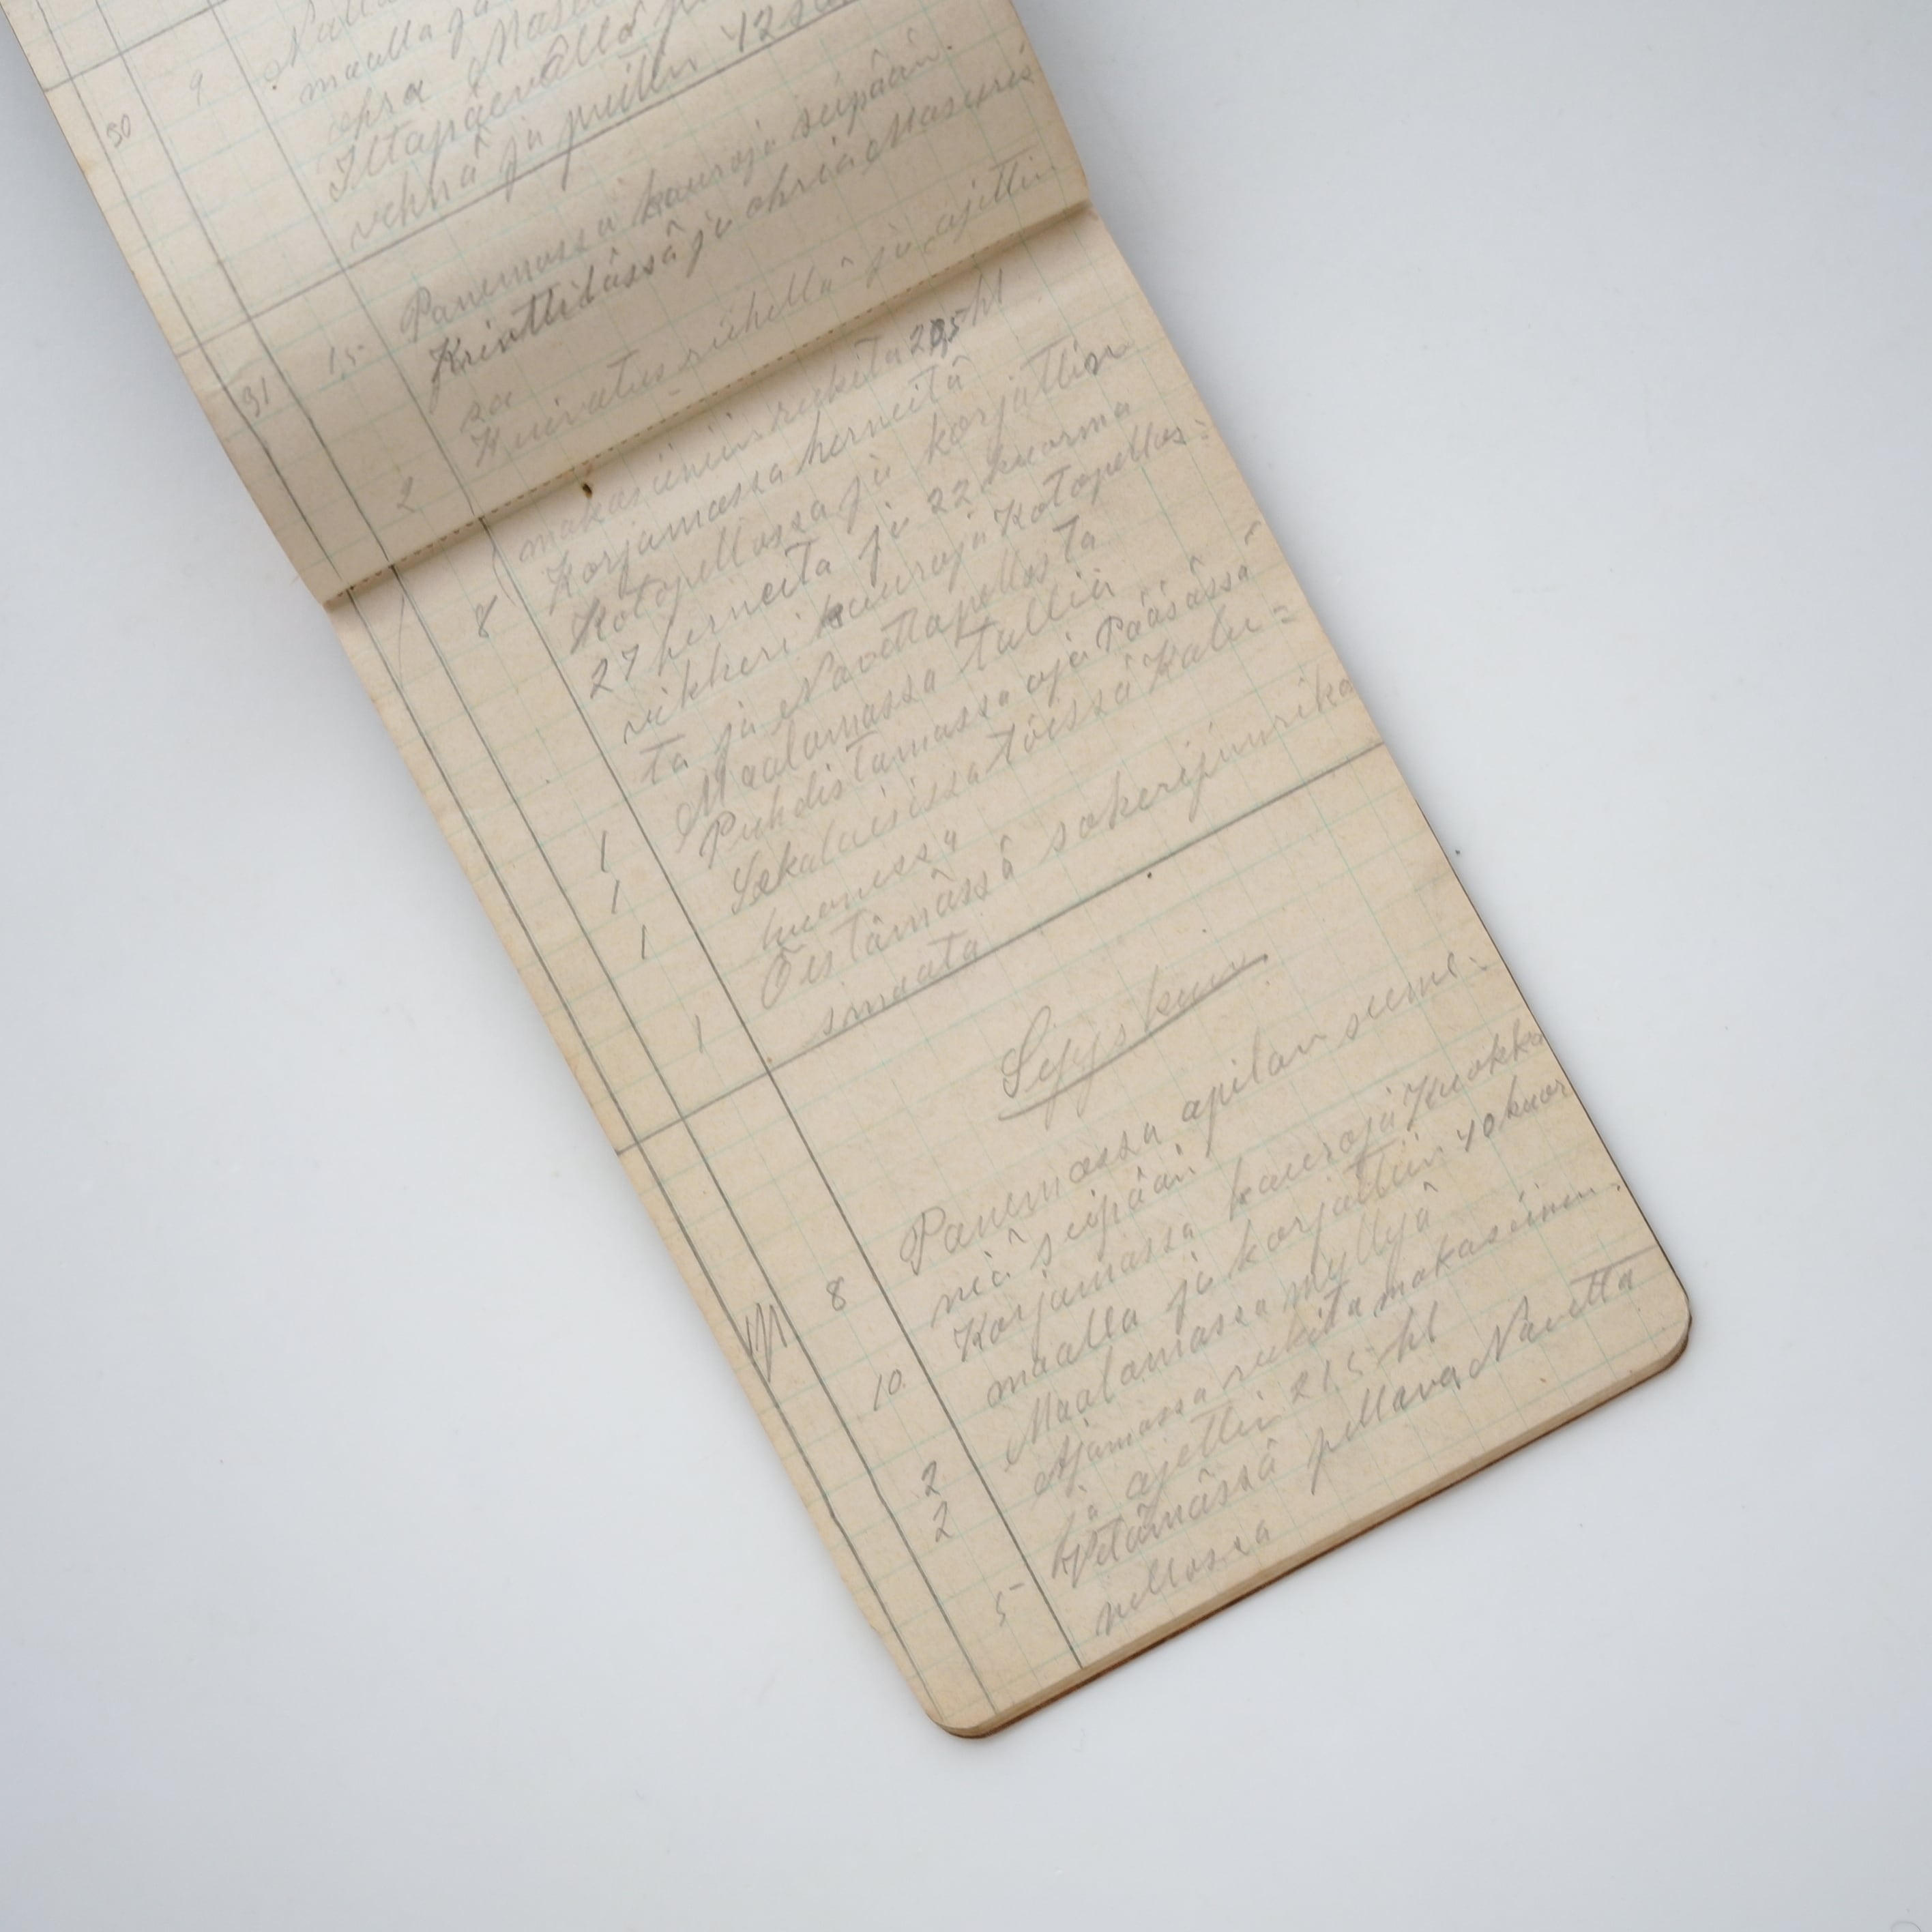 maalla ja
ohra
30 9 Iltapäevällä
vehnä ja puitiin 12
Panemassa kauroja seipään
15 Krinttilässä ja ohria Masuris
31 sa
Kuivatus riihellä ja ajettiin
2 makasiiniin rukita 295 hl
Korjamassa herneitä
Kotopellossa ja korjattiin
8 27 herneitä ja 22 kuorma
vikkeri kauroja Kotopellos=
ta ja Navettapellosta
Maalamassa tallia
1 Puhdistamassa ojia Pääsässä
1 Sekalaisissa töissä Kalu=
1 huonessa
Õistämässä sokerijuurika
1 simaata
Syyskuu
Panemassa apilan sieme-
niä seipään
8 Korjamassa kauroja Kuokka
maalla ja korjattiin 40 kuor
10. Maalamassa myllyä
Ajamassa rukita makasiinin-
2 ja ajettiin 215 hl
2 Vetämässä pellava Navetta
5 pellossa